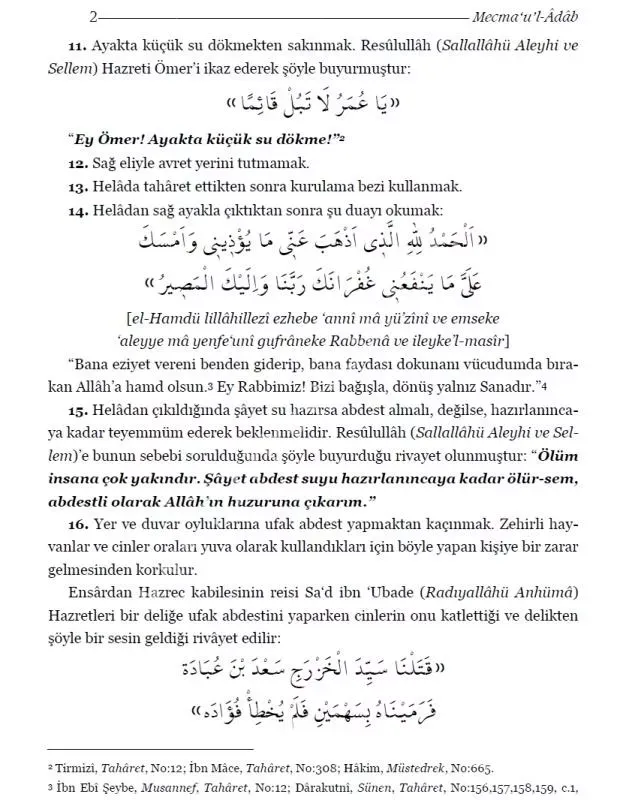 2 Mecma‘u’l-Âdâb
11. Ayakta küçük su dökmekten sakınmak. Resûlullâh (Sallallâhü Aleyhi ve
Sellem) Hazreti Ömer’i ikaz ederek şöyle buyurmuştur:
«يَا عُمَرُ لَا تَبُلْ قَائِمًا»
“Ey Ömer! Ayakta küçük su dökme!”2
12. Sağ eliyle avret yerini tutmamak.
13. Helâda tahâret ettikten sonra kurulama bezi kullanmak.
14. Helâdan sağ ayakla çıktıktan sonra şu duayı okumak:
«اَلْحَمْدُ لِلّٰهِ الَّذِى اَذْهَبَ عَنِّى مَا يُؤْذِينِى وَاَمْسَكَ
عَلَىَّ مَا يَنْفَعُنِى غُفْرَانَكَ رَبَّنَا وَاِلَيْكَ الْمَصِيرُ»
[el-Hamdü lillâhillezî ezhebe ‘annî mâ yü’zînî ve emseke
‘aleyye mâ yenfe‘unî gufrâneke Rabbenâ ve ileyke’l-masîr]
“Bana eziyet vereni benden giderip, bana faydası dokunanı vücudumda bıra-
kan Allâh’a hamd olsun.3 Ey Rabbimiz! Bizi bağışla, dönüş yalnız Sanadır.”4
15. Helâdan çıkıldığında şâyet su hazırsa abdest almalı, değilse, hazırlanınca-
ya kadar teyemmüm ederek beklenmelidir. Resûlullâh (Sallallâhü Aleyhi ve Sel-
lem)’e bunun sebebi sorulduğunda şöyle buyurduğu rivayet olunmuştur: “Ölüm
insana çok yakındır. Şâyet abdest suyu hazırlanıncaya kadar ölür-sem,
abdestli olarak Allâh’ın huzuruna çıkarım.”
16. Yer ve duvar oyluklarına ufak abdest yapmaktan kaçınmak. Zehirli hay-
vanlar ve cinler oraları yuva olarak kullandıkları için böyle yapan kişiye bir zarar
gelmesinden korkulur.
Ensârdan Hazrec kabilesinin reisi Sa‘d ibn ‘Ubade (Radıyallâhü Anhümâ)
Hazretleri bir deliğe ufak abdestini yaparken cinlerin onu katlettiği ve delikten
şöyle bir sesin geldiği rivâyet edilir:
«قَتَلْنَا سَيِّدَ الْخَزْرَجِ سَعْدَ بْنَ عُبَادَة
فَرَمَيْنَاهُ بِسَهْمَيْنِ فَلَمْ يُخْطِأْ فُؤَادَه»
2 Tirmizî, Tahâret, No:12; İbn Mâce, Tahâret, No:308; Hâkim, Müstedrek, No:665.
3 İbn Ebî Şeybe, Musannef, Tahâret, No:12; Dârakutnî, Sünen, Tahâret, No:156,157,158,159, c.1,